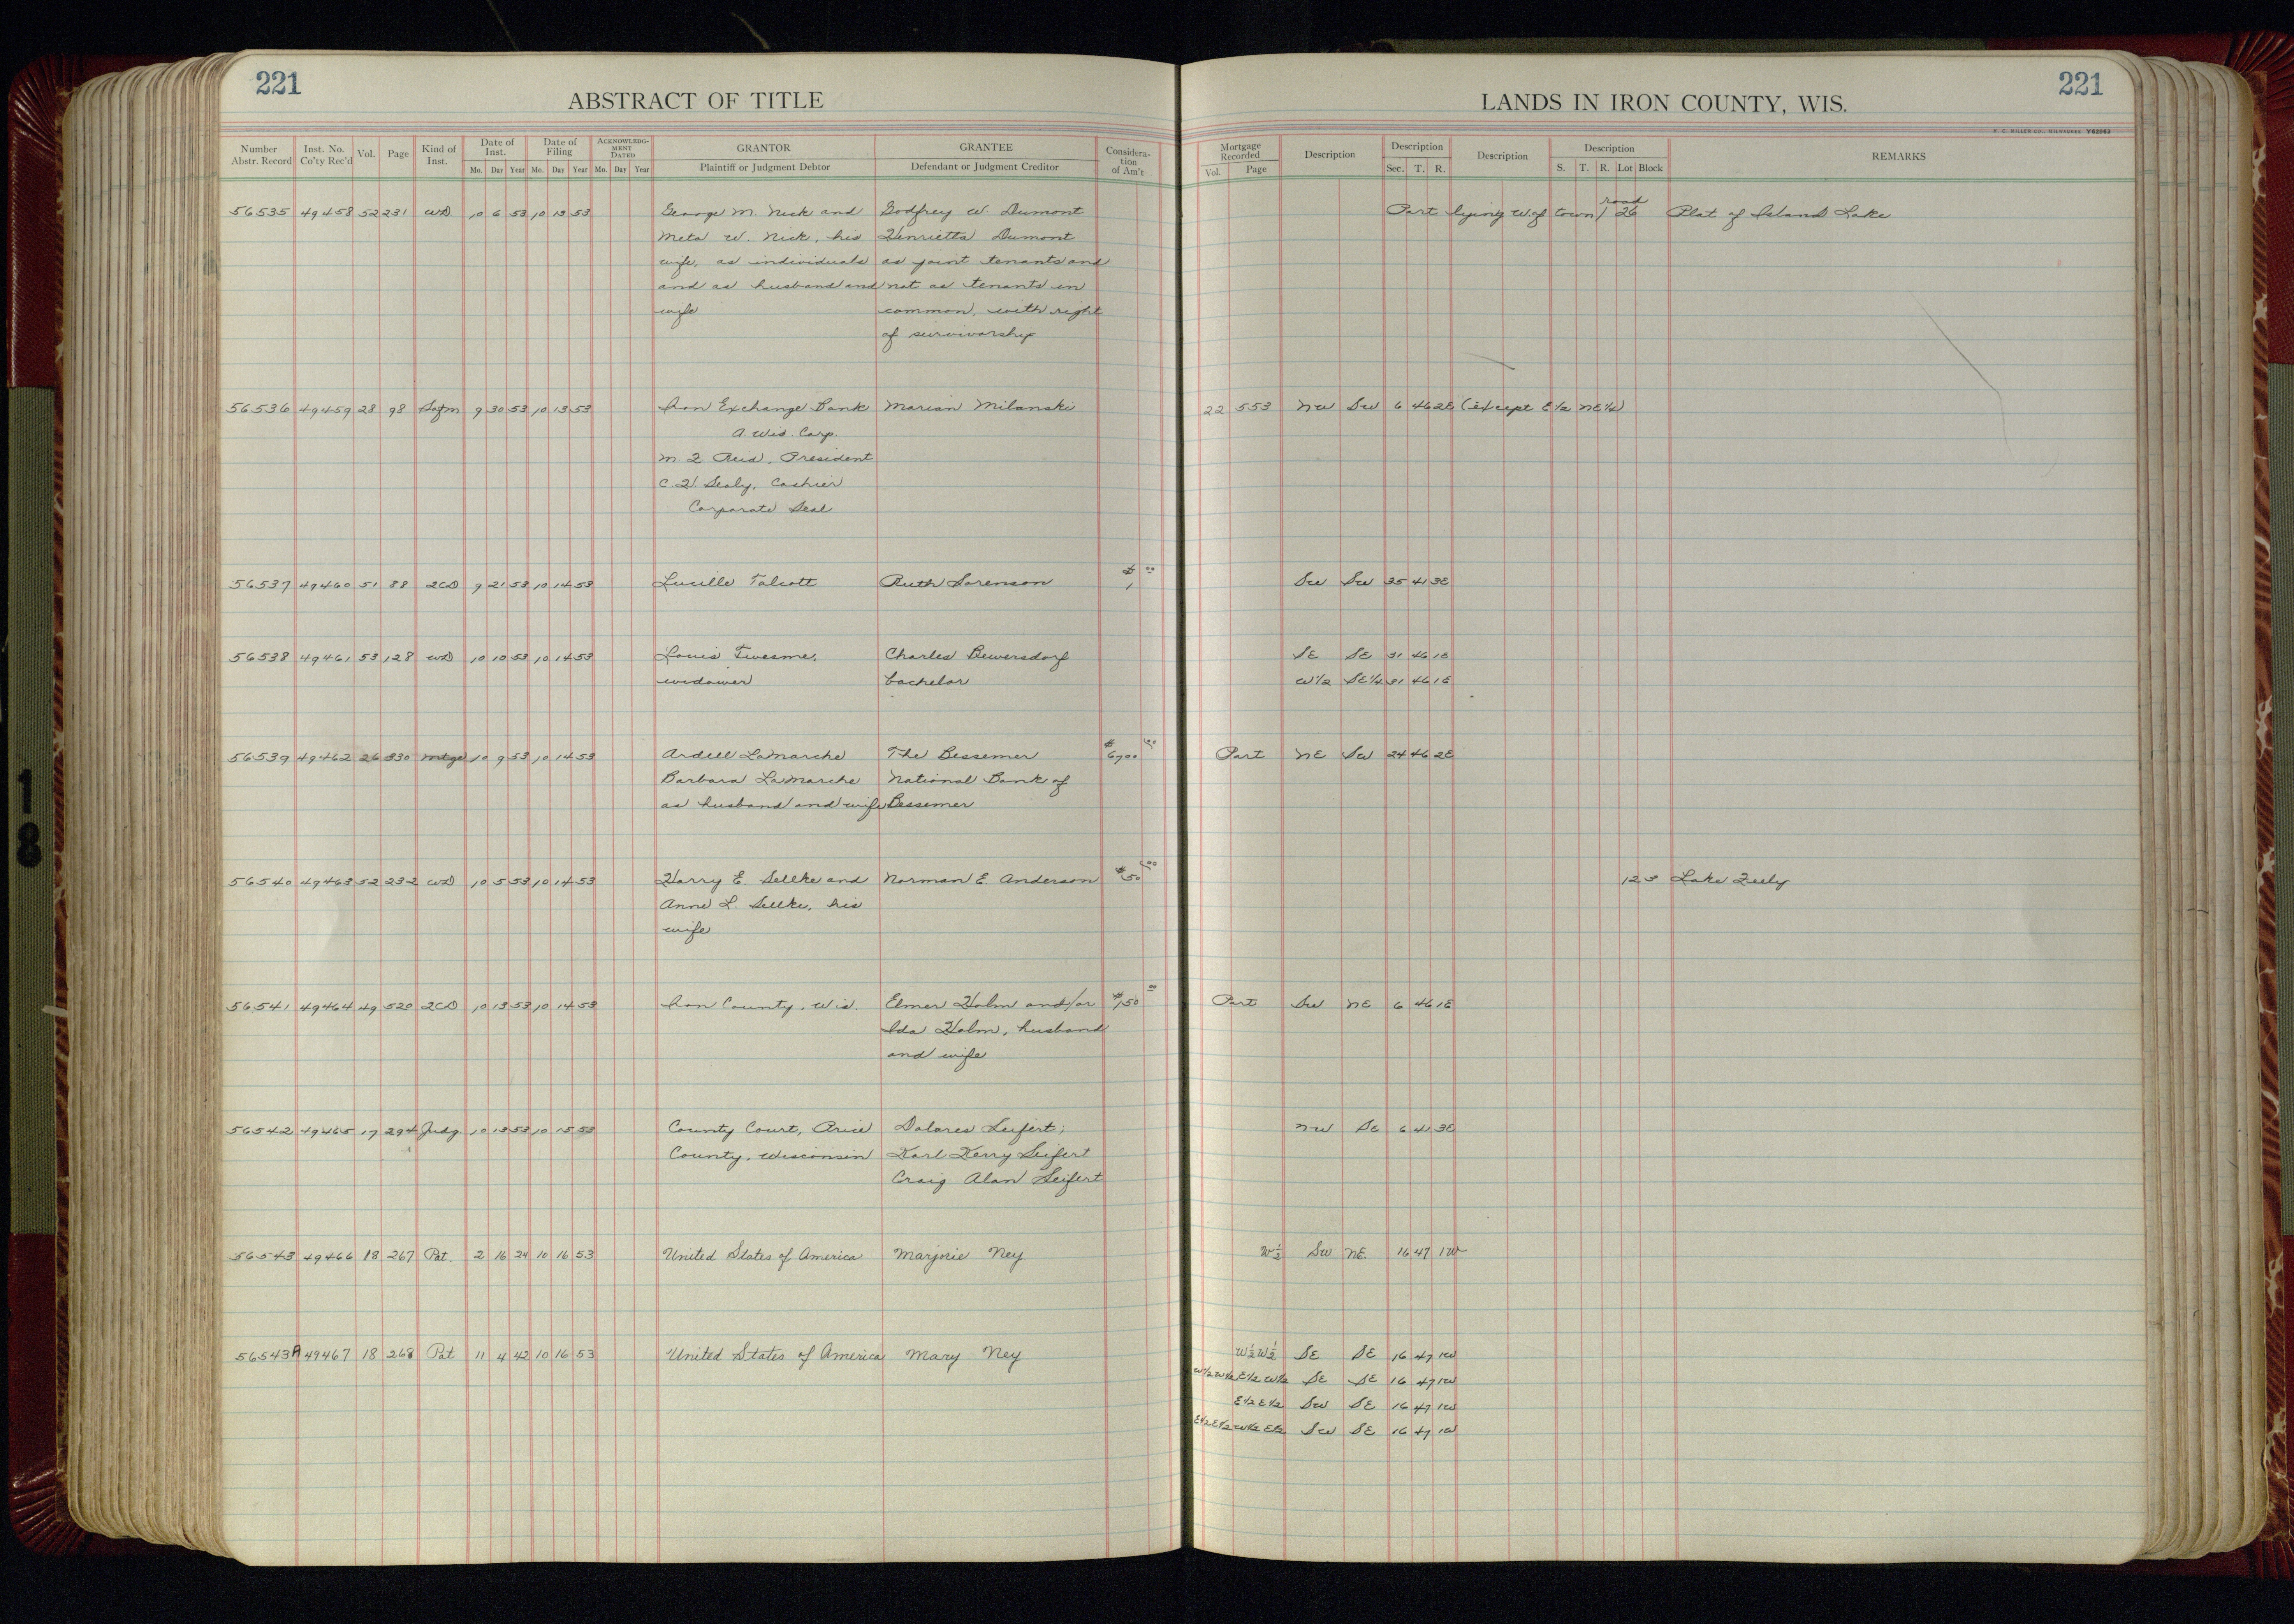 221
ABSTRACT OF TITLE
LANDS IN IRON COUNTY, WIS.
221
Number Abstr. Record Inst. No. Co'ty Rec'd Vol. Page Kind of Inst. Date of Inst. Mo. Day Year Date of Filing Mo. Day Year ACKNOWLEDGMENT DATED Mo. Day Year GRANTOR Plaintiff or Judgment Debtor GRANTEE Defendant or Judgment Creditor Consideration of Am't Mortgage Recorded Vol. Page Description Description Sec. T. R. Description Description S. T. R. Lot Block REMARKS
56535 49458 52 231 WD 10 6 53 10 13 53 George M. Nick and Godfrey W. Dumont Part lying W. of town road 26 Plat of Island Lake
Meta W. Nick, his Henrietta Dumont
wife, as individuals as joint tenants and
and as husband and not as tenants in
wife common, with right
of survivorship
56536 49459 28 98 Satm 9 30 53 10 13 53 Iron Exchange Bank Marian Milanski 22 553 NW SW 6 46 2E (except E½ NE¼)
A. Wis. Corp.
President
C.H. Sealy, Cashier
Corporate Seal
56537 49460 51 88 2CD 9 21 53 10 14 53 Lucille Talcott Ruth Sorenson $1 00 SW SW 35 41 3E
56538 49461 53 128 WD 10 10 53 10 14 53 Louis Twesme, Charles Bewersdorf SE SE 31 46 1E
widower bachelor W½ SE¼ 31 46 1E
56539 49462 26 330 Mtge 10 9 53 10 14 53 Ardell LaMarche The Bessemer $6700 00 Part NE SW 24 46 2E
Barbara LaMarche National Bank of
as husband and wife Bessemer
56540 49463 52 232 WD 10 5 53 10 14 53 Harry E. Sellke and Norman E. Anderson $50 00 12 3 Lake
Anne L. Sellke, his
wife
56541 49464 49 520 2CD 10 13 53 10 14 53 Iron County, Wis. Elmer Holm and/or $150 00 Part SW NE 6 46 1E
Ida Holm, husband
and wife
56542 49465 17 294 Judg. 10 13 53 10 15 53 County Court, Price Dolores Seifert; NW SE 6 41 3E
County, Wisconsin Karl Kerry Seifert
Craig Alan Seifert
56543 49466 18 267 Pat. 2 16 24 10 16 53 United States of America Marjorie Ney. W½ SW NE. 16 47 1W
56543A 49467 18 268 Pat 11 4 42 10 16 53 United States of America Mary Ney W½W½ SE SE 16 47 1W
W½W½E½W½ SE SE 16 47 1W
E½E½ SW SE 16 47 1W
E½E½W½E½ SW SE 16 47 1W
18